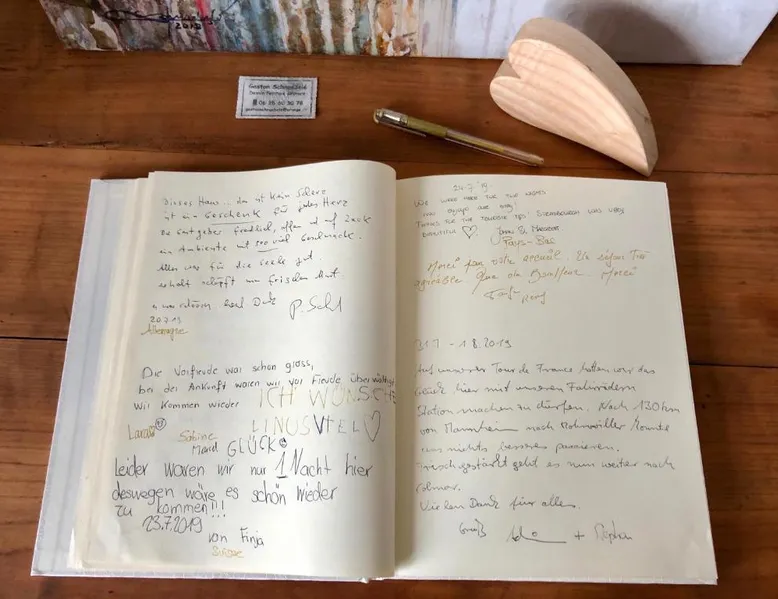 2019
Gaston
06 86 60 30 78
Dieses Haus... das ist kein Scherz
ist ein Geschenk für jedes Herz
Die Gastgeber freundlich, offen auf Zack
ein Ambiente mit soo viel Geschmack.
Alles was für die Seele gut.
erholt schöpft man frischen Mut.
Dank
P. Sch
20.7.19
Allemagne
Die Vorfreude war schon gross,
bei der Ankunft waren wir vor Freude überwältigt
Wir kommen wieder
ICH WÜNSCHE
LINUS VIEL ♡
GLÜCK
Lara
Sabine
Leider waren wir nur 1 Nacht hier
deswegen wäre es schön wieder
zu kommen!!!
23.7.2019
von Finja
Suisse
24.7.19.
We were here for two nights
and enjoyed
Thanks for the touristic tips! was very
beautiful ♡
Pays-Bas
Merci pour votre accueil. Un séjour Très
agréable Que du Bonheur. Merci
31.7 - 1.8.2019
Auf unserer Tour de France hatten wir das
Glück hier mit unseren Fahrrädern
Station machen zu dürfen. Nach 130 km
von Mannheim nach Rohrwiller konnte
uns nichts besseres passieren.
Frisch gestärkt geht es nun weiter nach
Colmar.
Vielen Dank für alles.
Gruß
+ Stephan